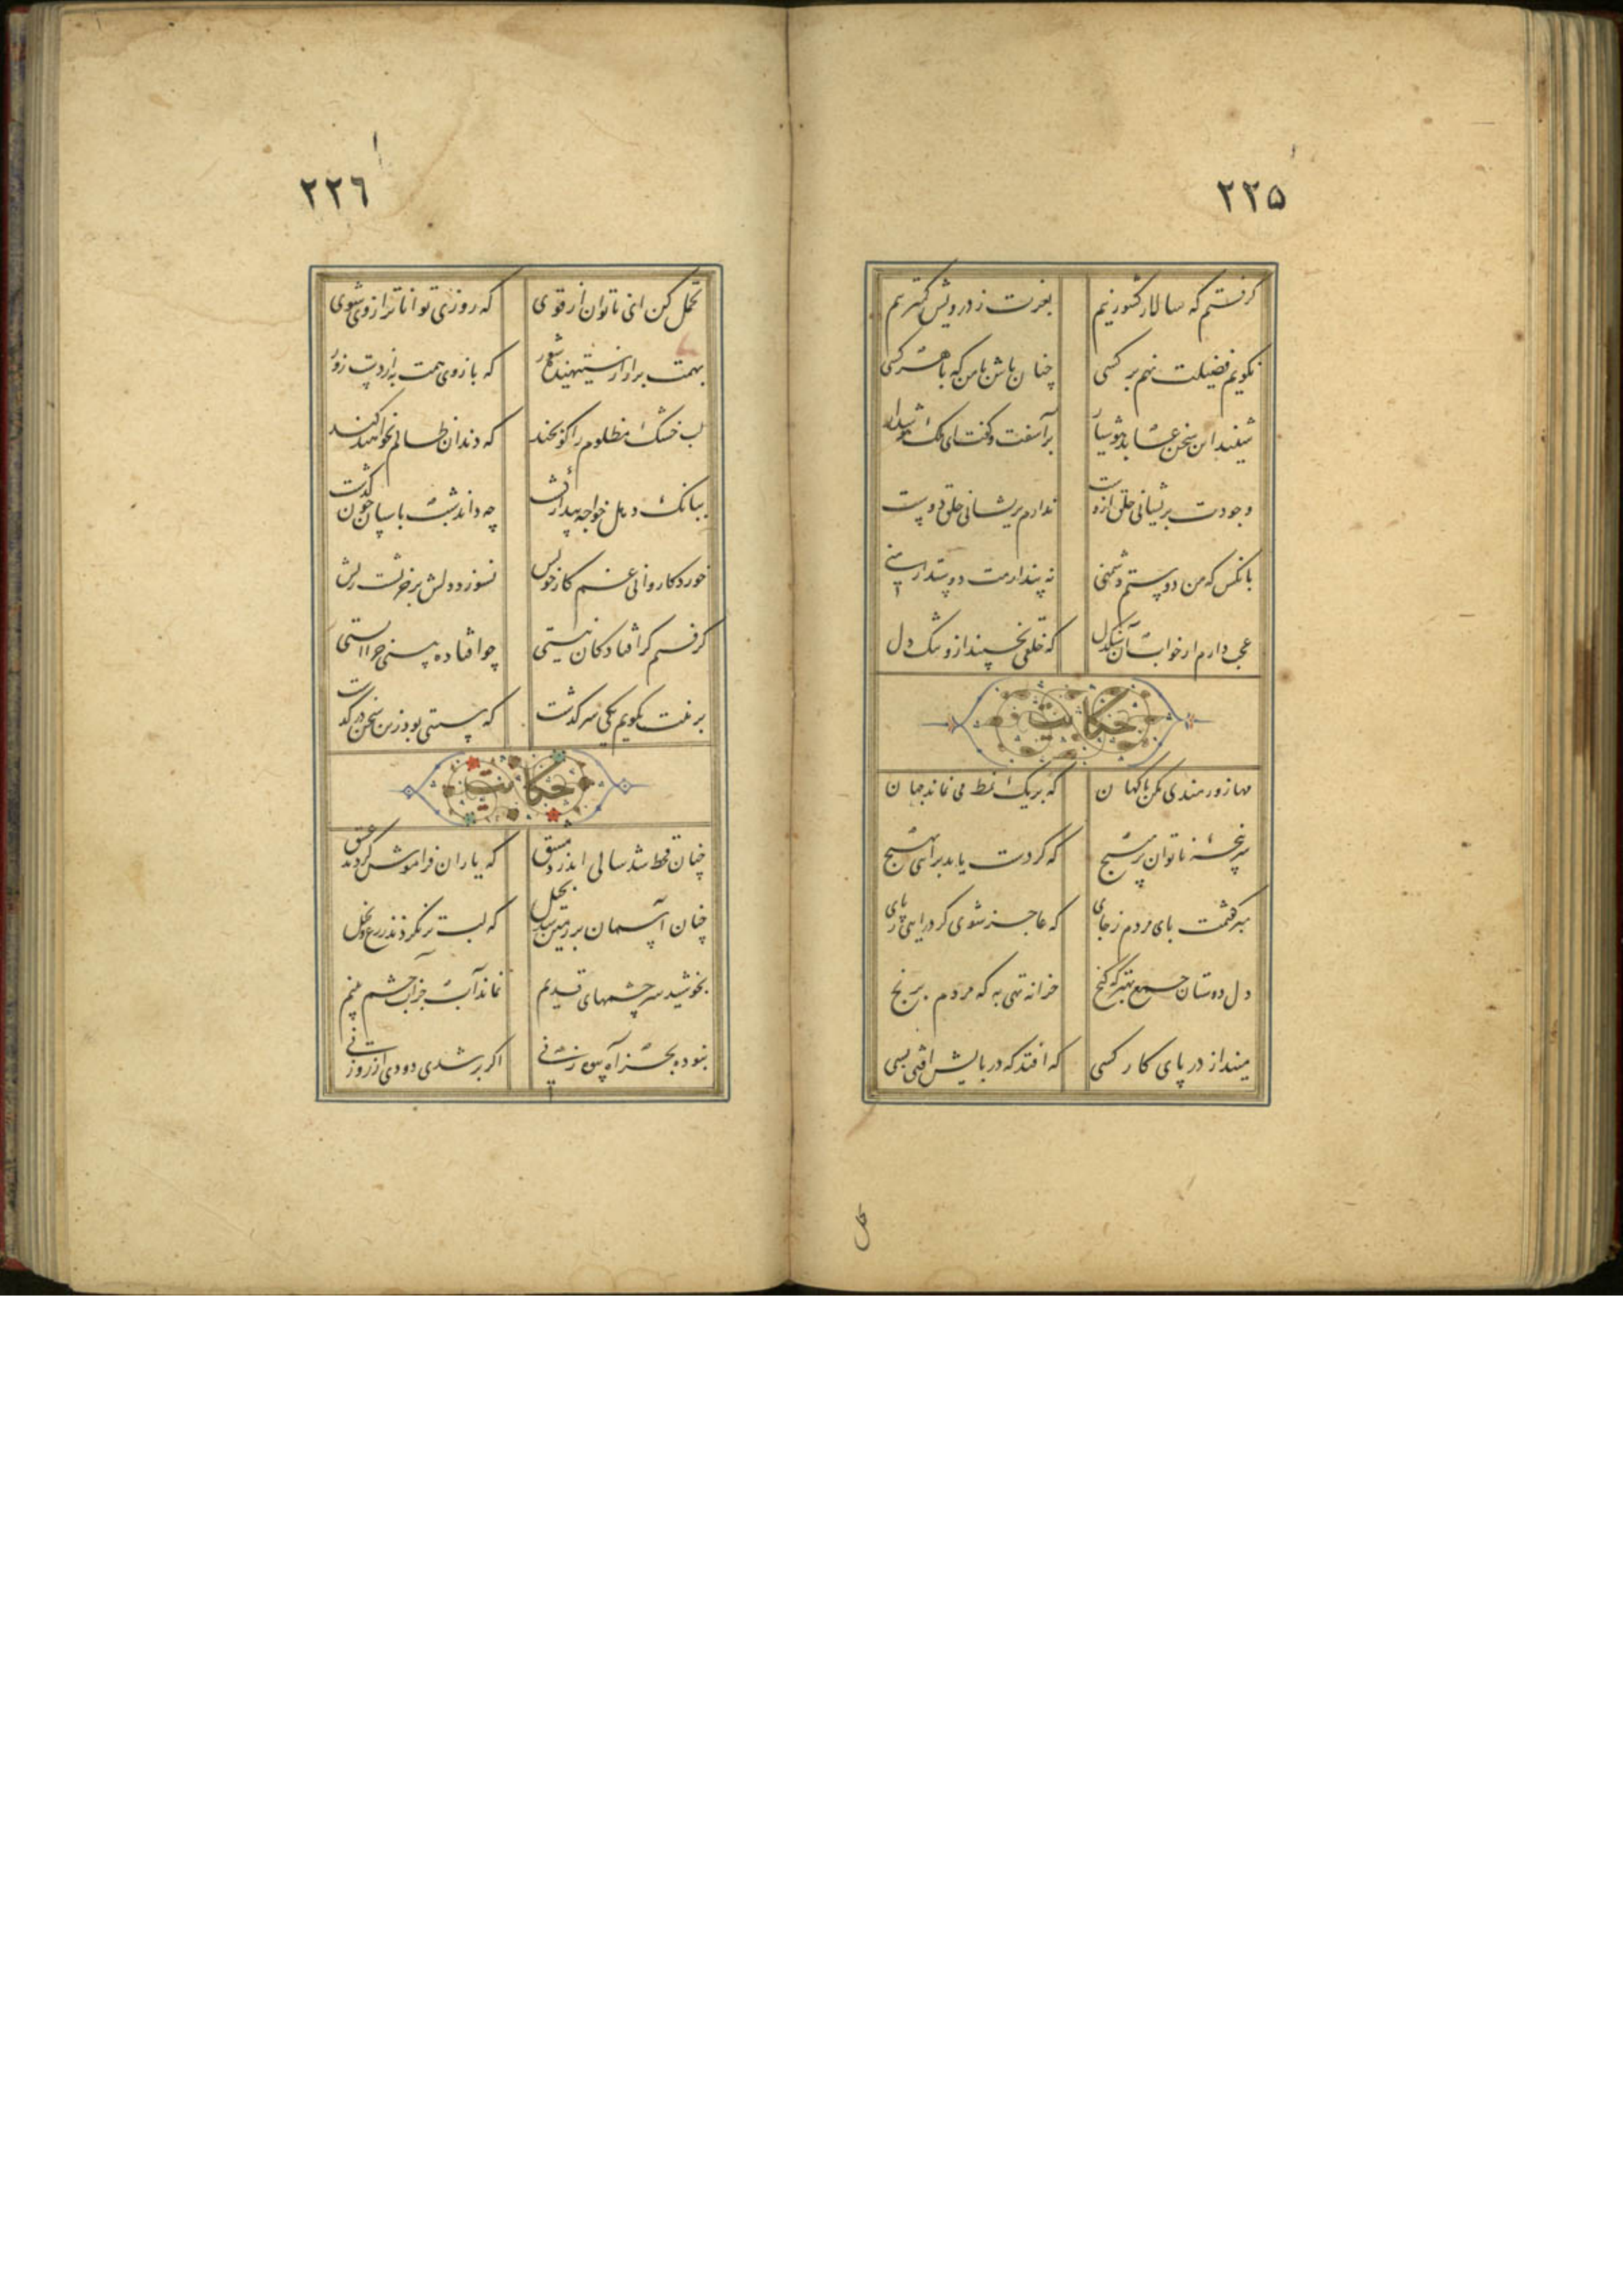 ٢٢٥
کرفتم که سالار کشور نیم بعزت ز درویش کمتر نیم
نکویم فضیلت نهم بر کسی چنان باش با من که با هر کسی
شنید این سخن عابد هوشیار برآشفت و کفت ای ملک هوش دار
وجودت پریشانی خلق ازوست ندارم پریشانی خلق دوست
بانکس که من دوستم دشمنی نه پندارمت دوستدار منی
عجب دارم از خواب آن سنکدل که خلقی بخسپند ازو تنک دل
حکایت
مها زورمندی مکن با کهان که بر یک نمط می نماند جهان
سر پنجۀ ناتوان بر مپیچ که کر دست یابد برآیی بهیچ
مبر کفتمت پای مردم ز جای که عاجز شوی کر درآیی ز پای
دل دوستان جمع بهتر که کنج خزانه تهی به که مردم برنج
مینداز در پای کار کسی که افتد که در پایش افتی بسی
تحمل
٢٢٦
تحمل کن ای ناتوان از قوی که روزی تواناتر از وی شوی
بهمت برار از ستیهنده شور که بازوی همت به از دست زور
لب خشک مظلوم را کو بخند که دندان ظالم بخواهند کند
ببانک دهل خواجه بیدار کشت چه داند شب پاسبان چون کذشت
خورد کاروانی غم کار خویش نسوزد دلش بر خر پشت ریش
کرفتم کز افتادکان نیستی چو افتاده بینی چرا ایستی
برینت بکویم یکی سرکذشت که سستی بود زین سخن در کذشت
حکایت
چنان قحط شد سالی اندر دمشق که یاران فراموش کردند عشق
چنان آسمان بر زمین شد بخیل که لب تر نکردند زرع و نخیل
بخوشید سرچشمهای قدیم نماند آب جز آب چشم یتیم
نبوده بجز آه بیوه زنی اکر بر شدی دودی از روزنی